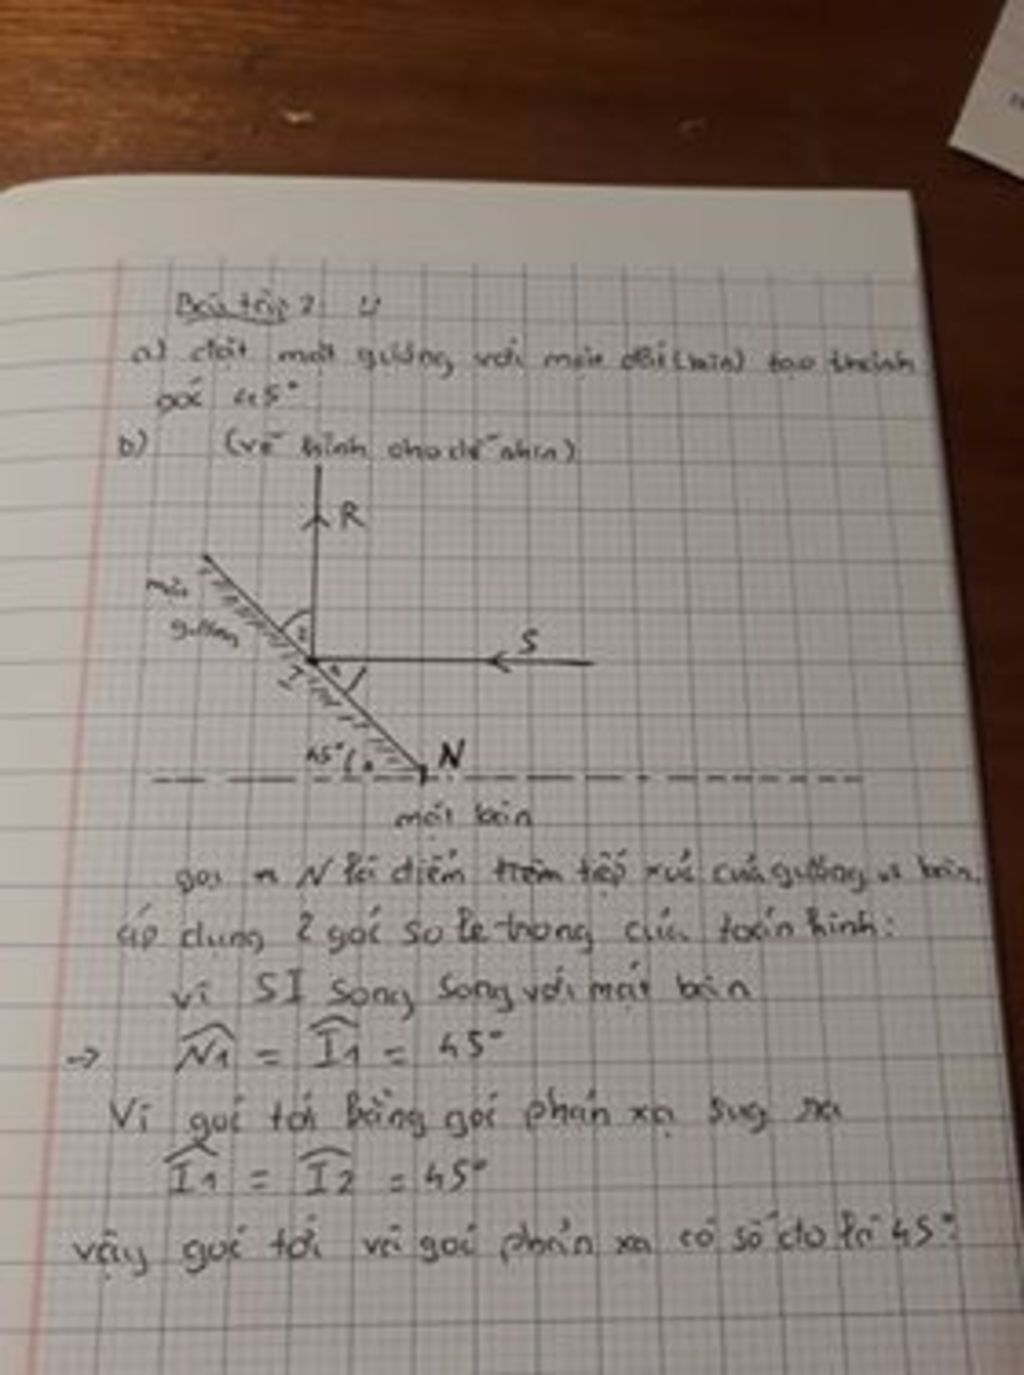 Bài tập 2:
a) đặt mặt gương với mặt đất (bàn) tạo thành
góc 45°
b) (vẽ hình cho dễ nhìn)
R
gương
S
I
45°
N
mặt bàn
gọi N là điểm tiếp xúc của gương bàn.
áp dụng 2 góc so le trong của toán hình:
vì SI song song với mặt bàn
→ N1 = I1 = 45°
Vì góc tới bằng góc phản xạ suy ra
I1 = I2 = 45°
vậy góc tới và góc phản xạ có số đo là 45°.